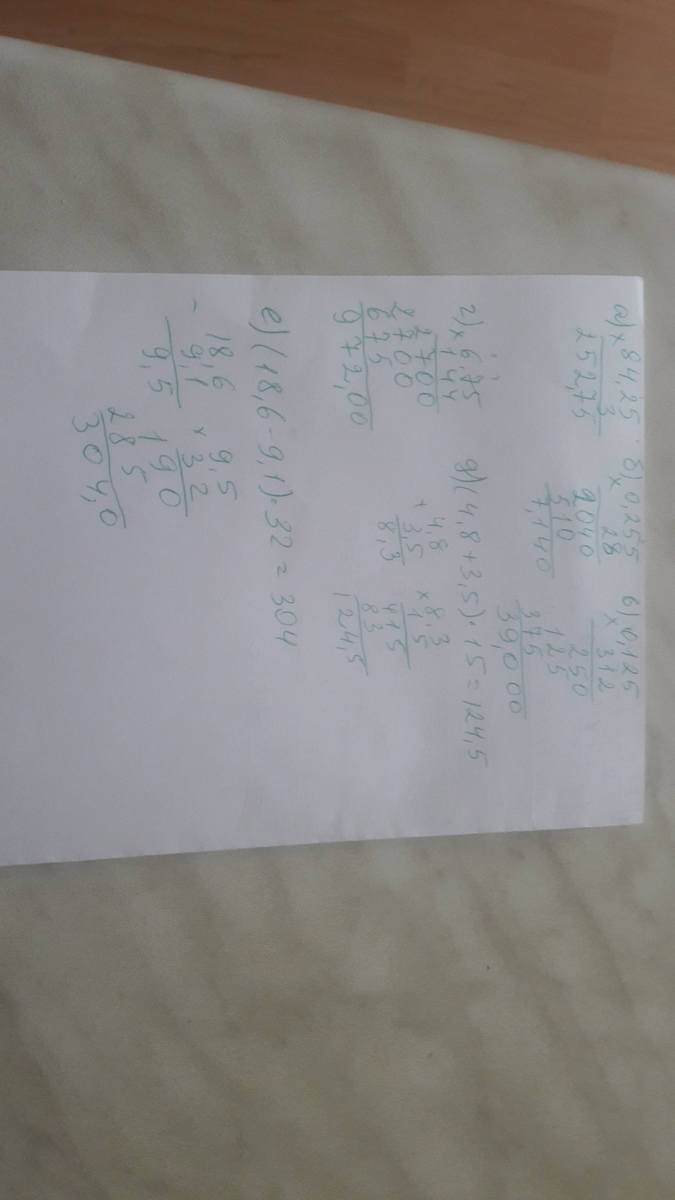 а) × 84,25 б) × 0,255 в) × 0,125
3 28 312
252,75 2040 250
510 125
7,140 375
39,000
г) × 6,75 д) (4,8 + 3,5) · 15 = 124,5
144
2700 + 4,8 × 8,3
2700 3,5 1,5
675 8,3 415
972,00 83
124,5
е) (18,6 - 9,1) · 32 = 304
- 18,6 × 9,5
9,1 3,2
9,5 190
285
304,0